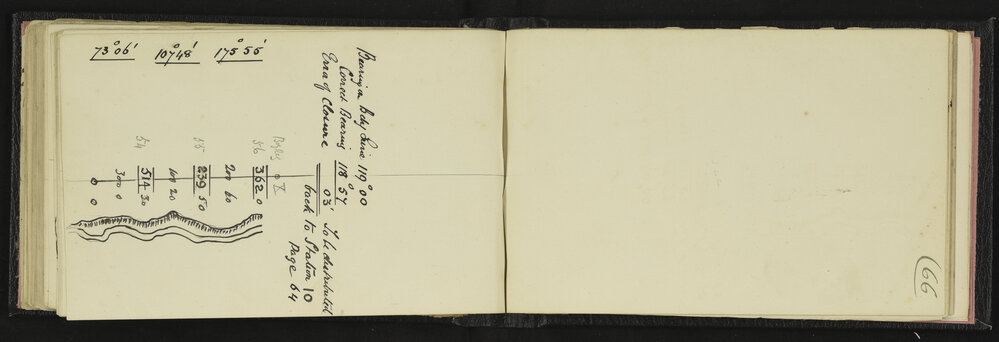 73° 06'
107° 48'
175° 55'
Bearing on Bdy Line 119° 00
Correct Bearing 118° 57
Error of Closure 03' To be distributed
back to Station 10
Page 64
Bdy
56
362 0
200 60
55
239 50
100 20
54
514 30
300 0
0 0
66